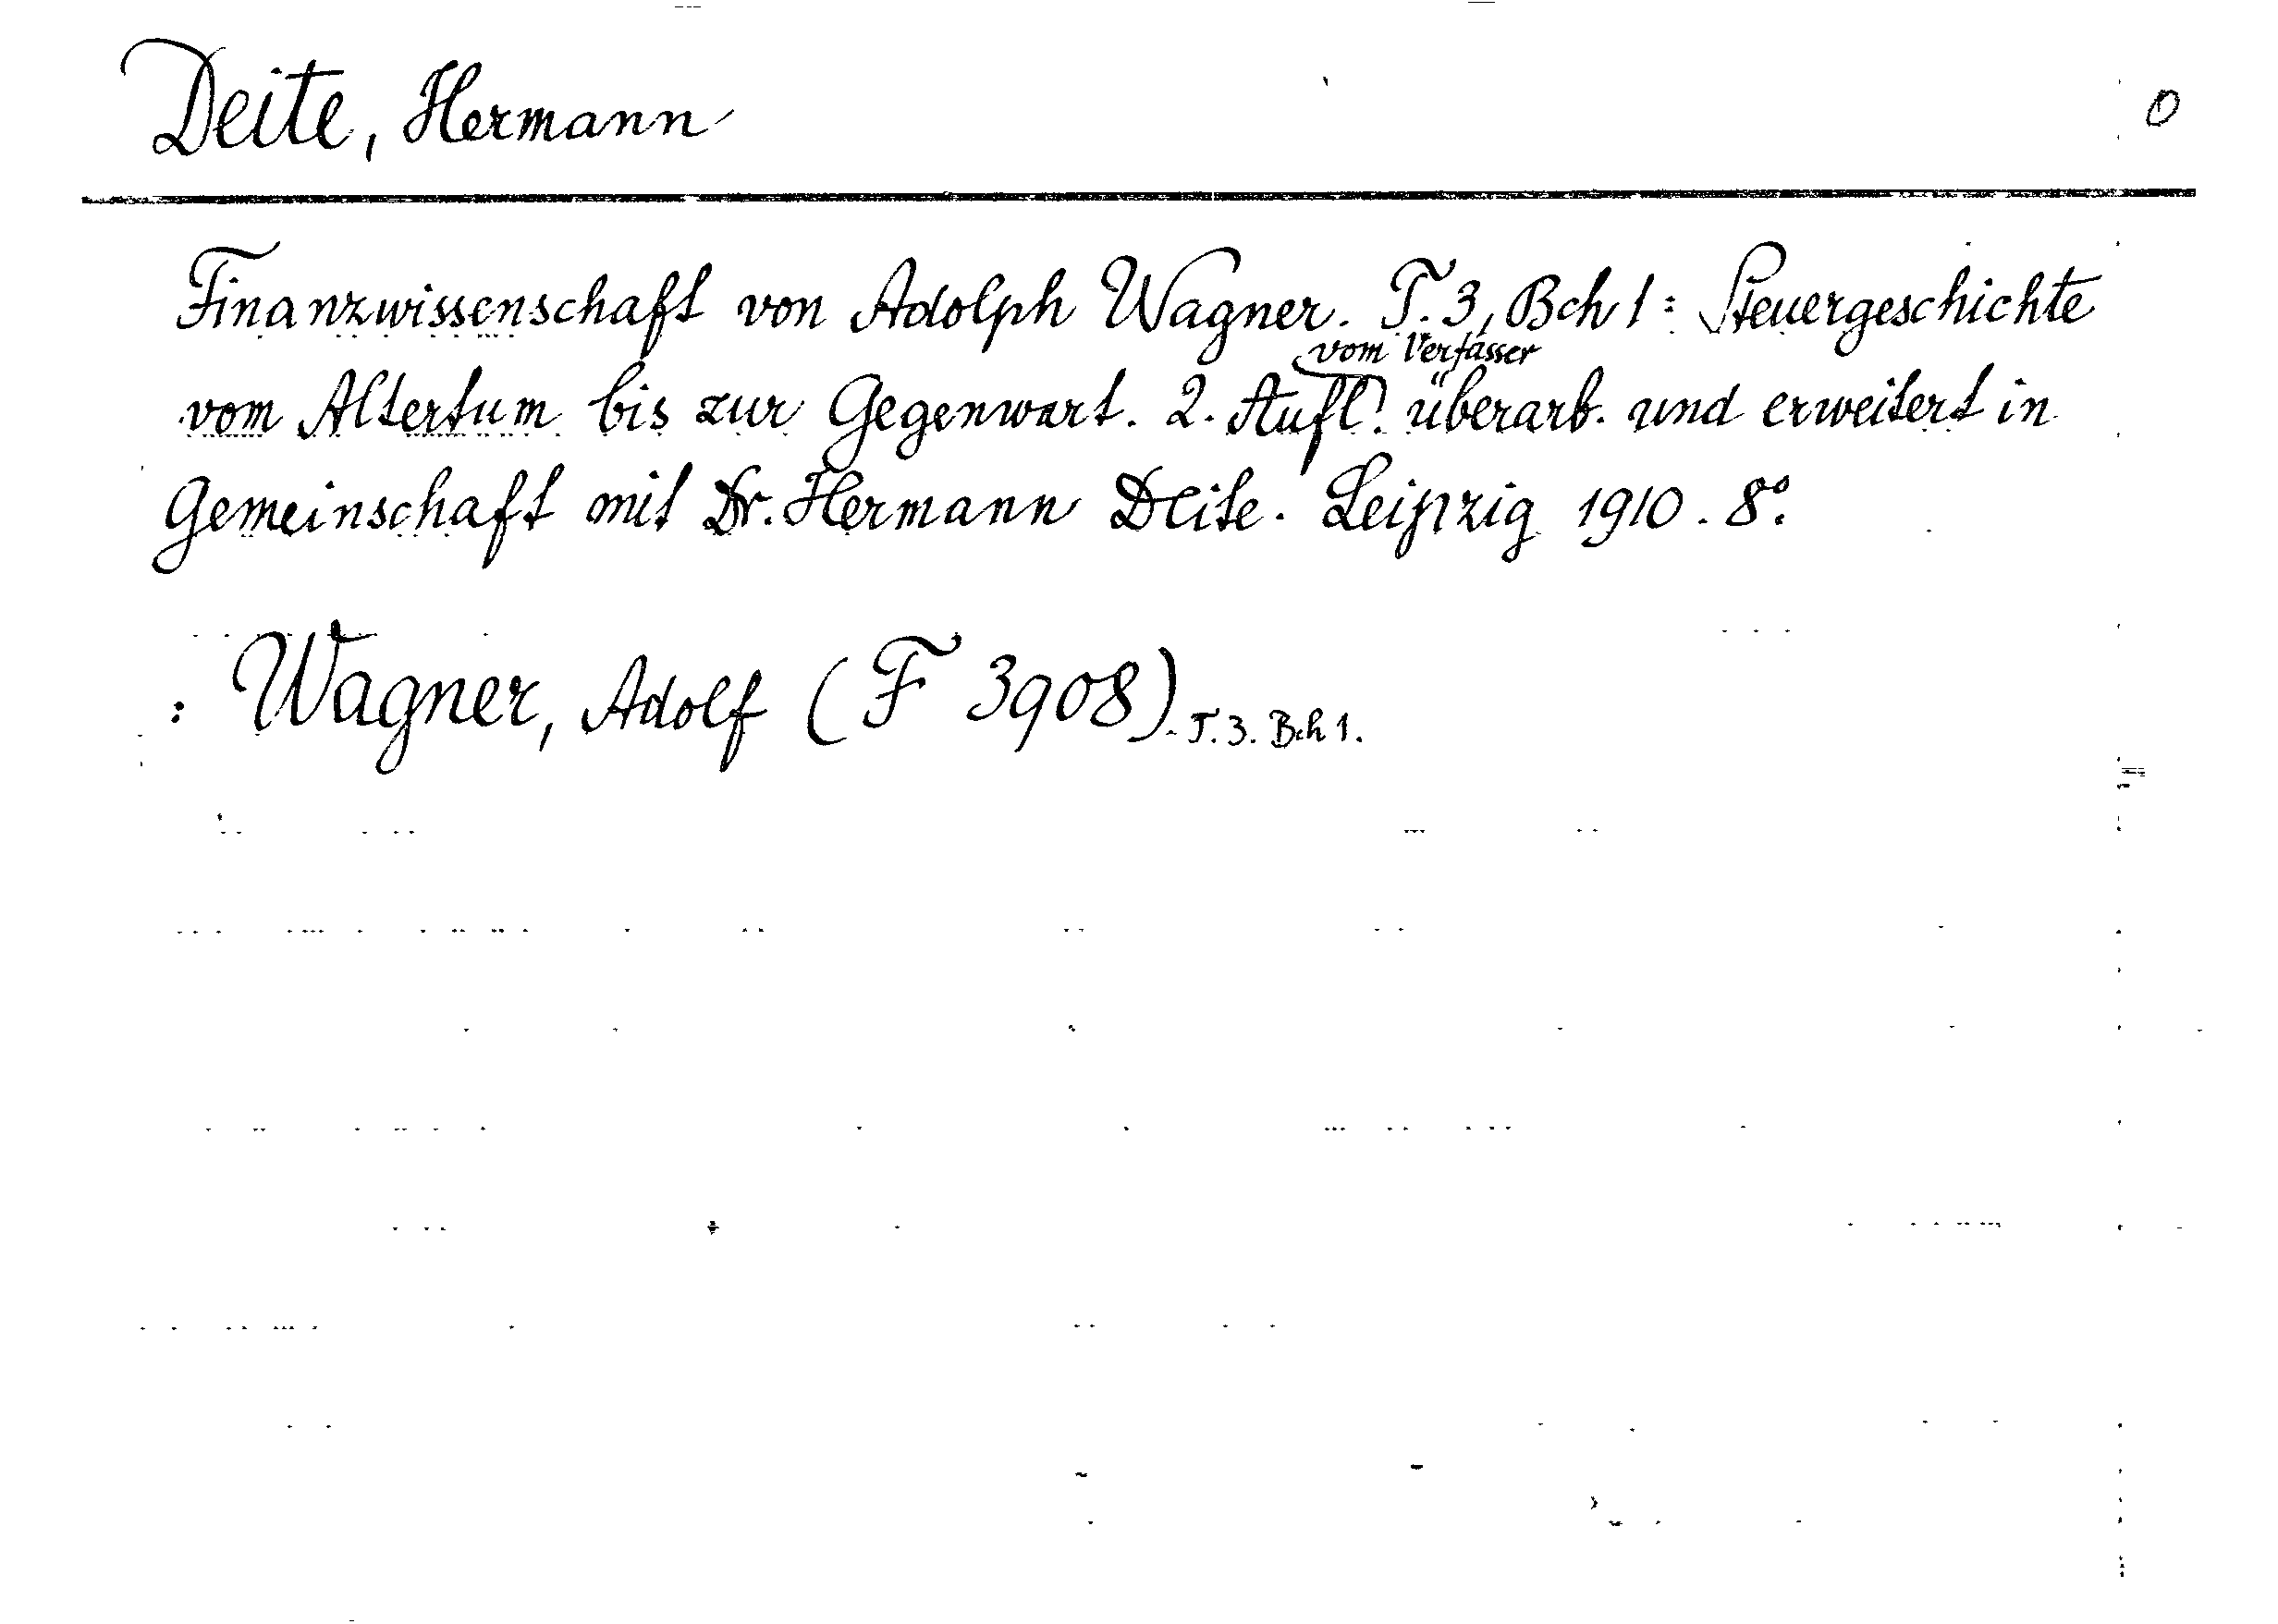 Deite, Hermann
0
Finanzwissenschaft von Adolph Wagner. T. 3, Bch 1: Steuergeschichte
vom Verfasser
vom Altertum bis zur Gegenwart. 2. Aufl. überarb. und erweitert in
Gemeinschaft mit Dr. Hermann Deite. Leipzig 1910. 8°.
: Wagner, Adolf (F 3908). T. 3. Bch 1.